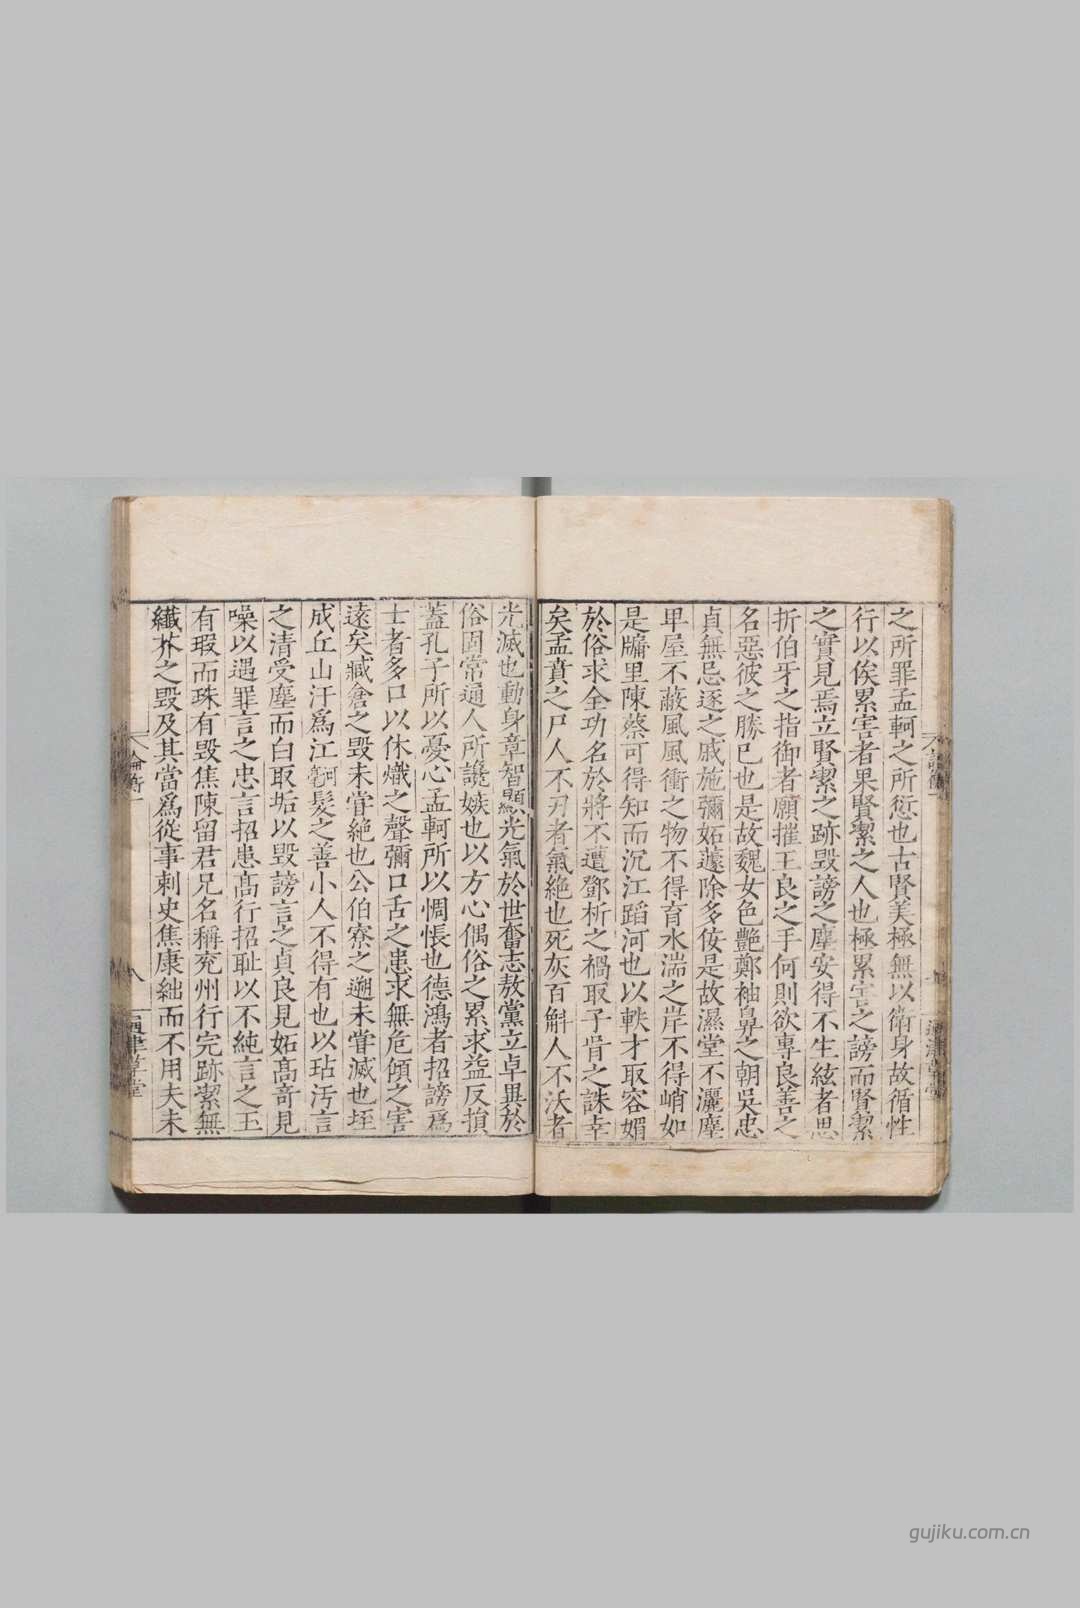 之所罪孟軻之所愆也古賢美極無以衛身故循性
行以俟累害者果賢潔之人也極累害之謗而賢潔
之實見焉立賢潔之跡毀謗之塵安得不生絃者思
折伯牙之指御者願摧王良之手何則欲專良善之
名惡彼之勝已也是故魏女色艷鄭袖鼻之朝吳忠
貞無忌逐之戚施彌妬蘧除多佞是故濕堂不灑塵
卑屋不蔽風風衝之物不得育水湍之岸不得峭如
是牖里陳蔡可得知而沉江蹈河也以軼才取容媚
於俗求全功名於將不遭鄧析之禍取子胥之誅幸
矣孟賁之尸人不刃者氣絶也死灰百斛人不沃者
光滅也動身章智顯光氣於世奮志敖黨立卓異於
俗固常通人所讒嫉也以方心偶俗之累求益反損
蓋孔子所以憂心孟軻所以惆悵也德鴻者招謗爲
士者多口以休熾之聲彌口舌之患求無危傾之害
遠矣臧倉之毀未甞絶也公伯寮之遡未甞滅也垤
成丘山汙爲江河矣髮之善小人不得有也以玷汚言
之清受塵而白取垢以毀謗言之貞良見妬高奇見
噪以遇罪言之忠言招患高行招耻以不純言之玉
有瑕而珠有毀焦陳留君兄名稱兖州行完跡潔無
纖芥之毀及其當爲從事刺史焦康絀而不用夫未
論衡一
八
通津草堂
gujiku.com.cn